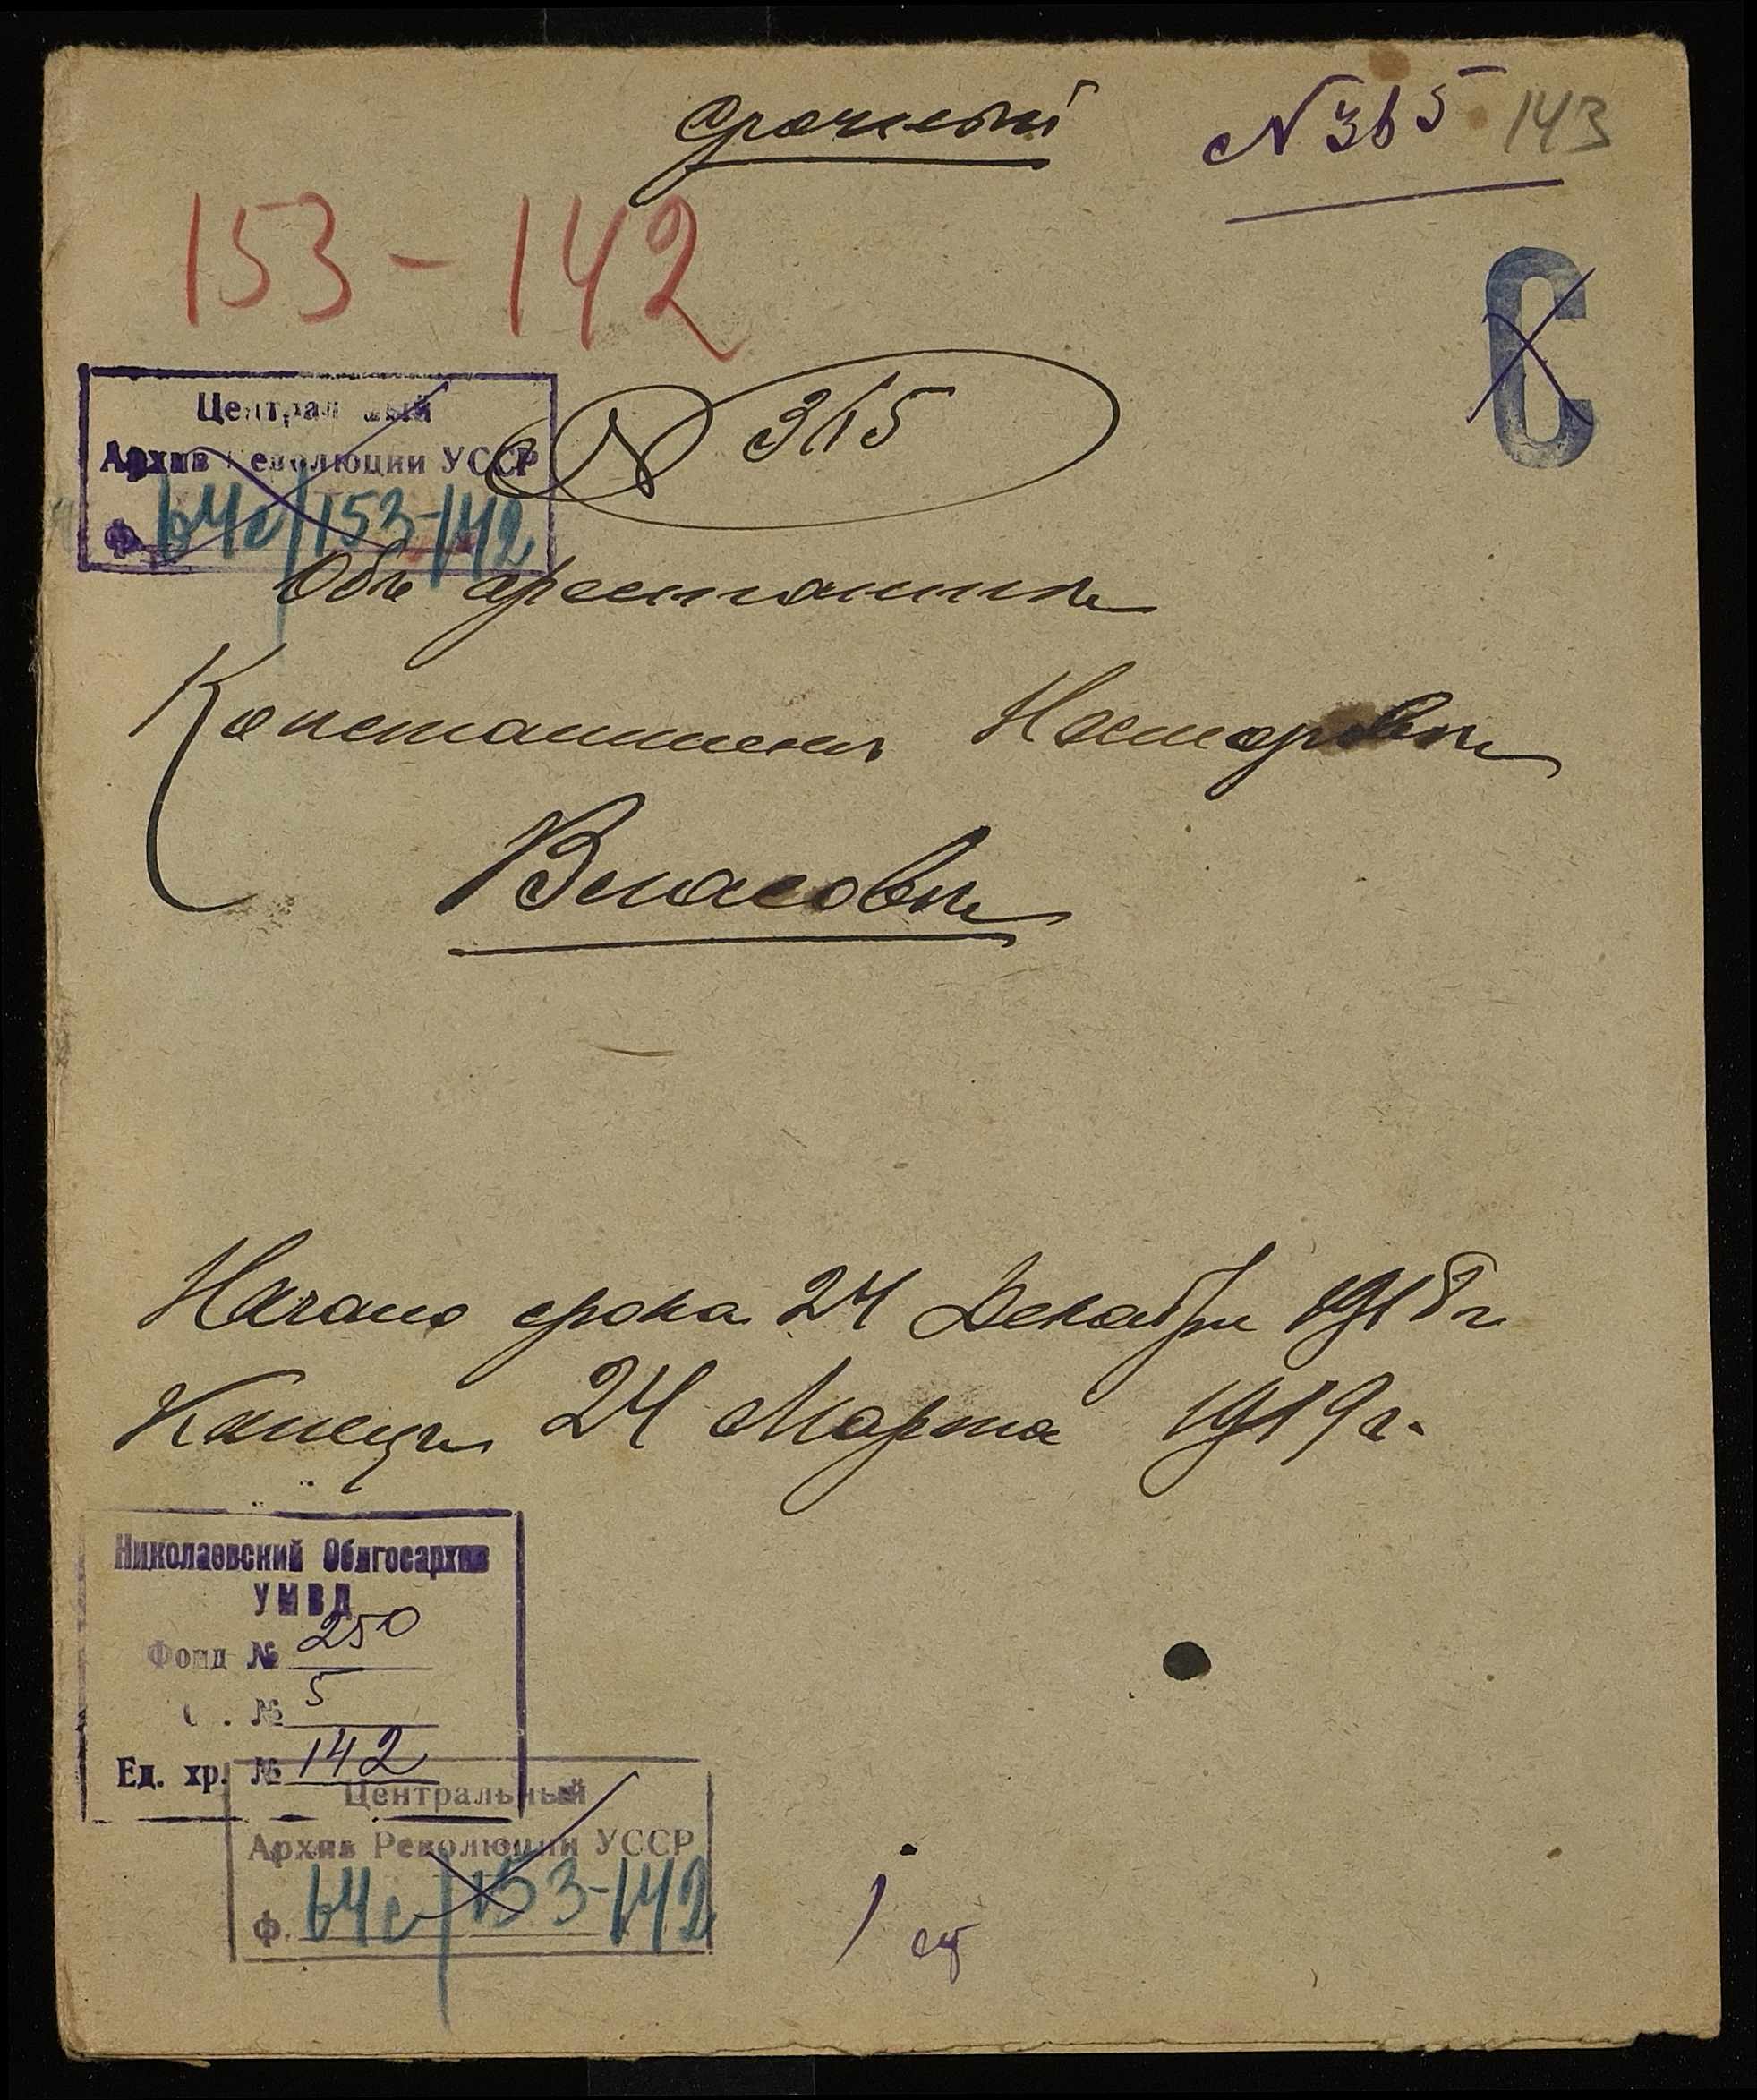 срочный
№ 365 143
153-142
С
Центральный
Архив Революции УССР
Ф. 64с/153-142
№ 365
Объ арестантѣ
Константинѣ
Власовѣ
Начало срока 24 Декабря 1918 г.
Конецъ 24 Марта 1919 г.
Николаевский Облгосархив
УМВД
Фонд № 250
№ 5
Ед. хр. № 142
Центральный
Архив Революции УССР
Ф. 64с/153-142